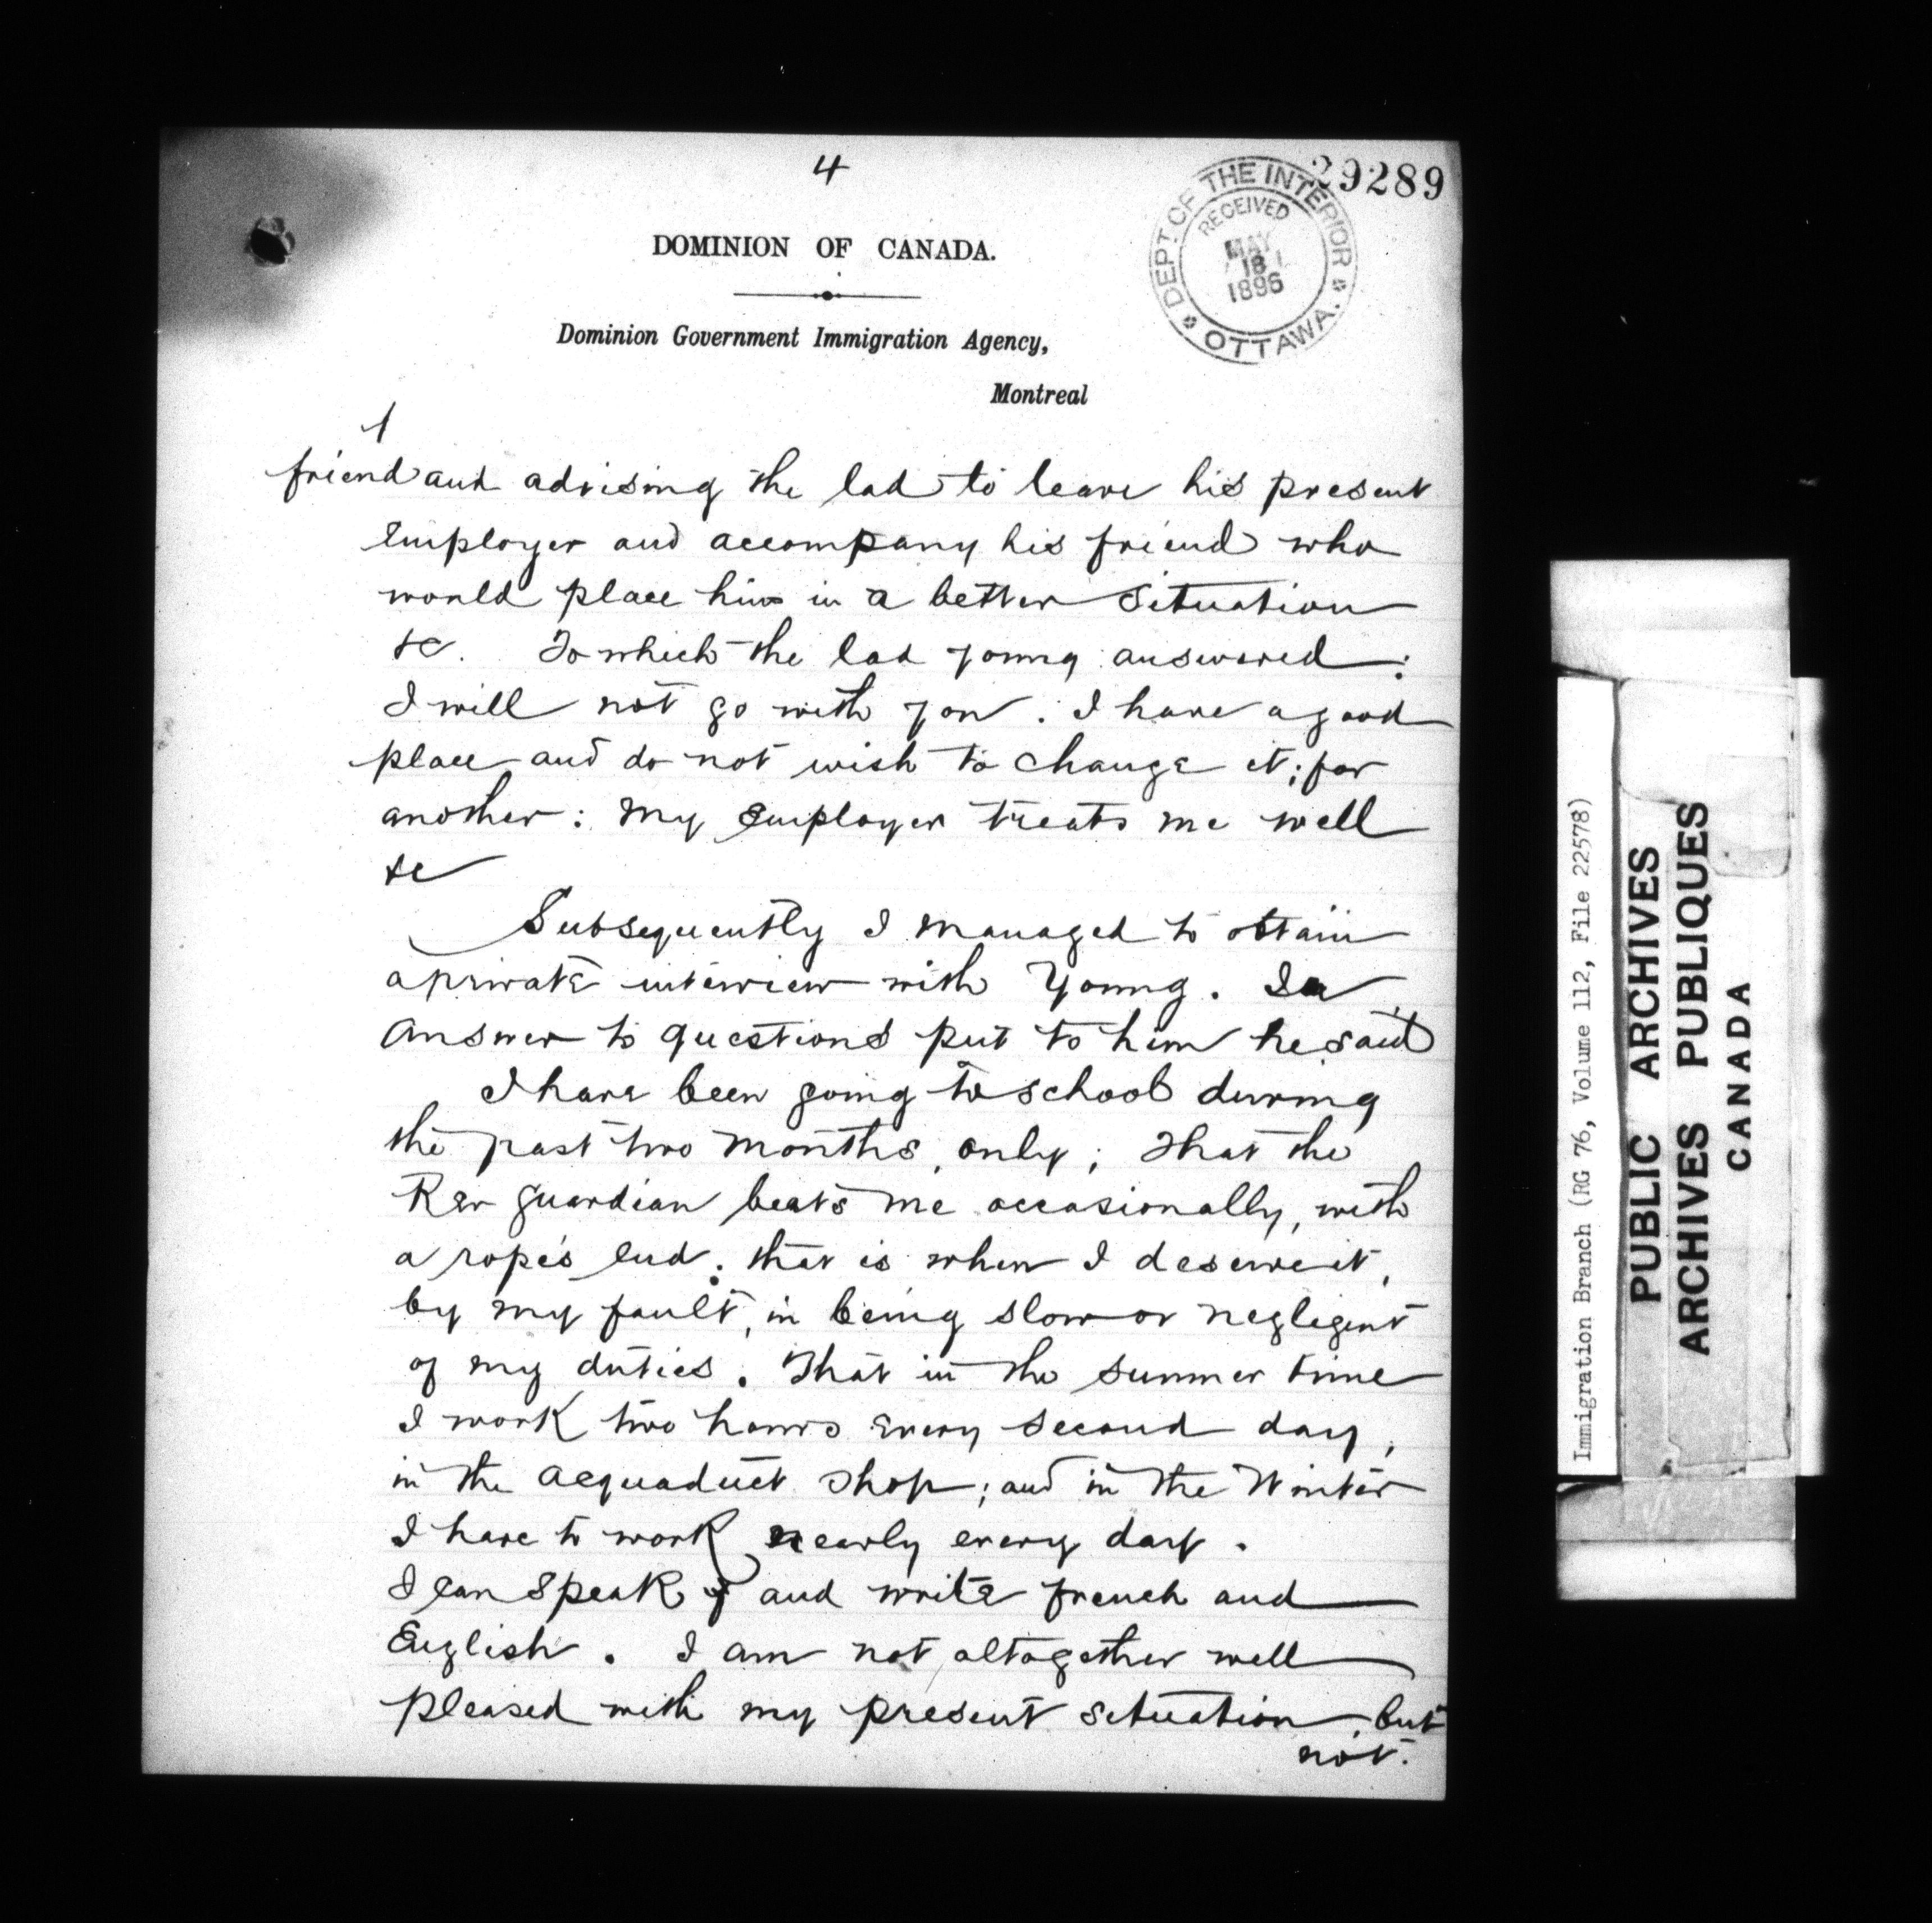 4
29289
DEPT OF THE INTERIOR
RECEIVED
MAY
18
1896
OTTAWA.
DOMINION OF CANADA.
Dominion Government Immigration Agency,
Montreal
friend and advising the lad to leave his present
Employer and accompany his friend who
would place him in a better situation
&c. To which the lad young answered:
I will not go with you. I have a good
place and do not wish to change it; for
another: my Employer treats me well
&c
Subsequently I managed to obtain
a private interview with Young. In
answer to questions put to him he said
I have been going to school during
the past two months, only; that the
Rev guardian beats me occasionally, with
a rope's end; that is when I deserve it,
by my fault, in being slow or negligent
of my duties. That in the summer time
I work two hours every second day,
in the acquaduct shop; and in the Winter
I have to work nearly every day.
I can speak and write french and
English. I am not altogether well
pleased with my present situation, but
not.
Immigration Branch (RG 76, Volume 112, File 22578)
PUBLIC ARCHIVES
ARCHIVES PUBLIQUES
CANADA